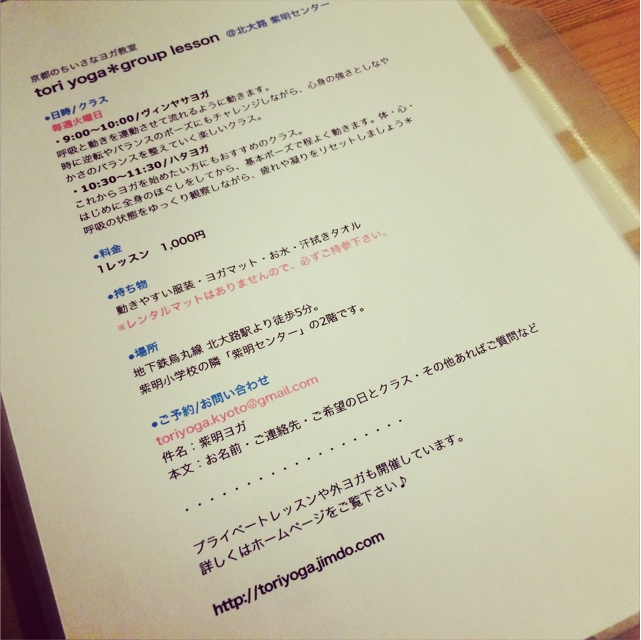 京都のちいさなヨガ教室
tori yoga＊group lesson @北大路 紫明センター
●日時/クラス
毎週火曜日
・9:00〜10:00/ヴィンヤサヨガ
呼吸と動きを連動させて流れるように動きます。
時に逆転やバランスのポーズにもチャレンジしながら、心身の強さとしなや
かさのバランスを整えていく楽しいクラス。
・10:30〜11:30/ハタヨガ
これからヨガを始めたい方にもおすすめのクラス。
はじめに全身のほぐしをしてから、基本ポーズで程よく動きます。体・心・
呼吸の状態をゆっくり観察しながら、疲れや凝りをリセットしましょう＊
●料金
1レッスン 1,000円
●持ち物
動きやすい服装・ヨガマット・お水・汗拭きタオル
※レンタルマットはありませんので、必ずご持参下さい。
●場所
地下鉄烏丸線 北大路駅より徒歩5分。
紫明小学校の隣「紫明センター」の2階です。
●ご予約/お問い合わせ
toriyoga.kyoto@gmail.com
件名：紫明ヨガ
本文：お名前・ご連絡先・ご希望の日とクラス・その他あればご質問など
・・・・・・・・・・・・・・・・・・・
プライベートレッスンや外ヨガも開催しています。
詳しくはホームページをご覧下さい♪
http://toriyoga.jimdo.com